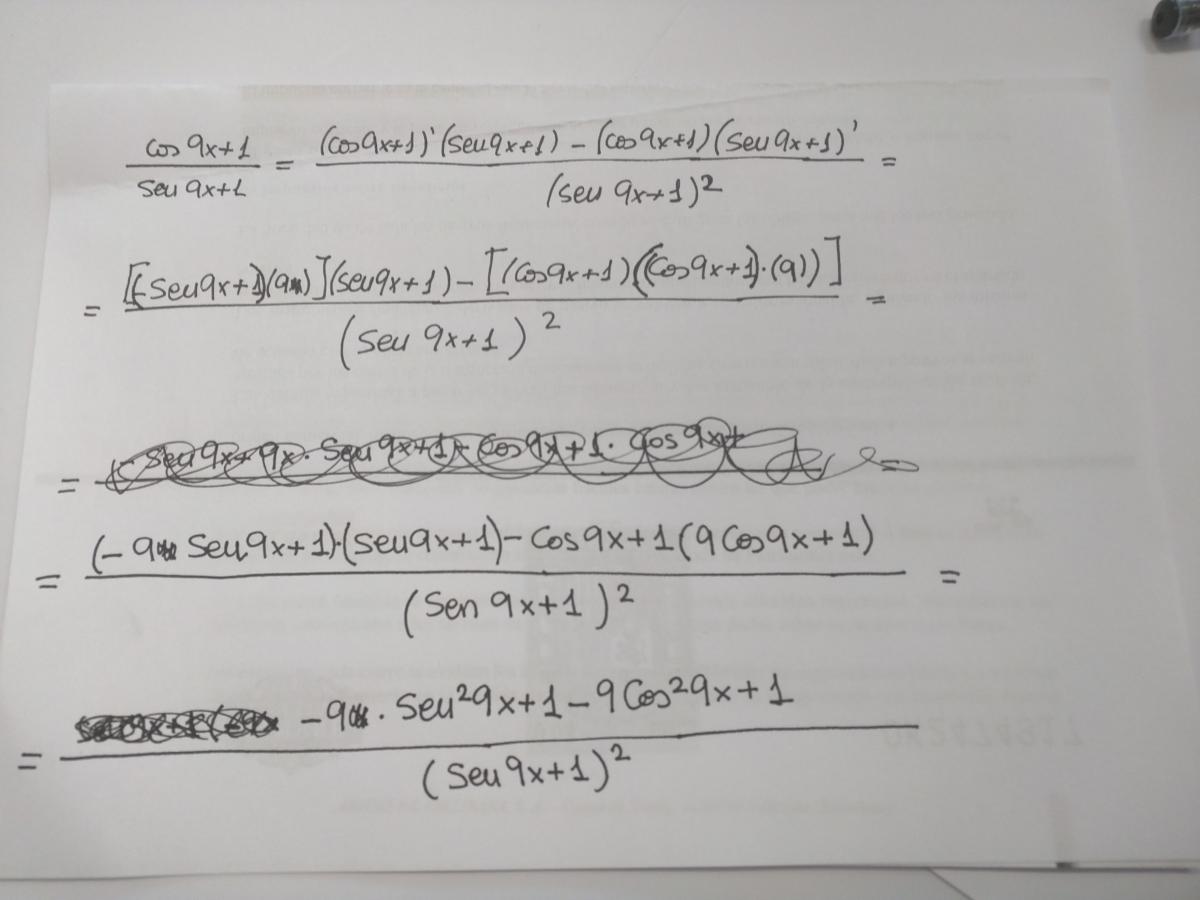 cos 9x+1 / sen 9x+1 = (cos 9x+1)' (sen 9x+1) - (cos 9x+1) (sen 9x+1)' / (sen 9x+1)² =
= [(-sen 9x+1)(9)] (sen 9x+1) - [(cos 9x+1) ((cos 9x+1)·(9))] / (sen 9x+1)² =
= =
= (-9 sen 9x+1)·(sen 9x+1) - cos 9x+1 (9 cos 9x+1) / (sen 9x+1)² =
= -9 · sen² 9x+1 - 9 cos² 9x+1 / (sen 9x+1)²